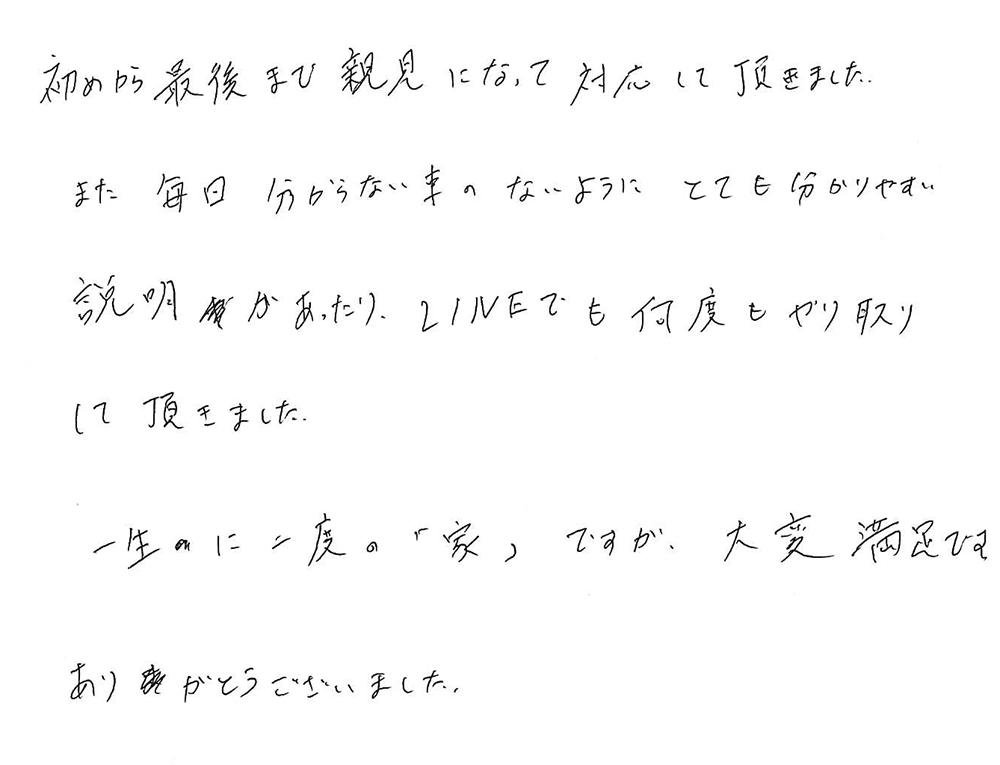 初めから最後まで親見になって対応して頂きました.
また 毎日 分からない事のないように とても分かりやすい
説明 があったり、LINEでも何度もやり取り
して頂きました.
一生に二度の「家」ですが、大変満足です
ありがとうございました.